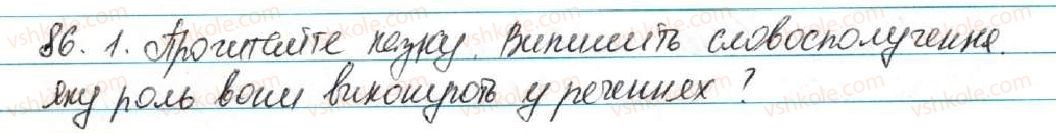 86. 1. Прочитайте казку. Випишіть словосполучення.
Яку роль вони виконують у реченнях?